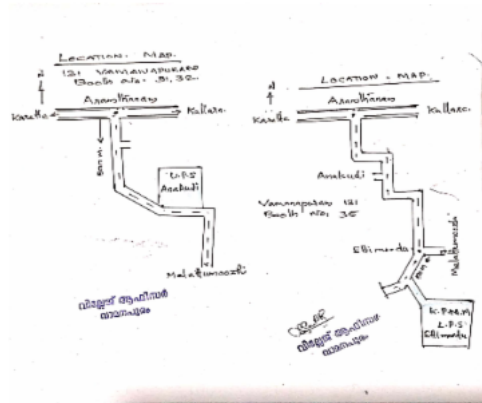 LOCATION. MAP.
131 VAMANAPURAM
Booth No. 31, 32.
N
Aramthanam
Karette
Kallara.
500 M
U.P.S
Anakudi
Melattumoozhi
വില്ലേജ് ആഫീസർ
വാമനപുരം
LOCATION. MAP.
N
Aramthanam
Karetta
Kallara.
Anakudi
Vamanapuram 131
Booth No: 35
Ettimuda
Melattumoozhi
L.P.S
Ettimuda
വില്ലേജ് ആഫീസർ
വാമനപുരം